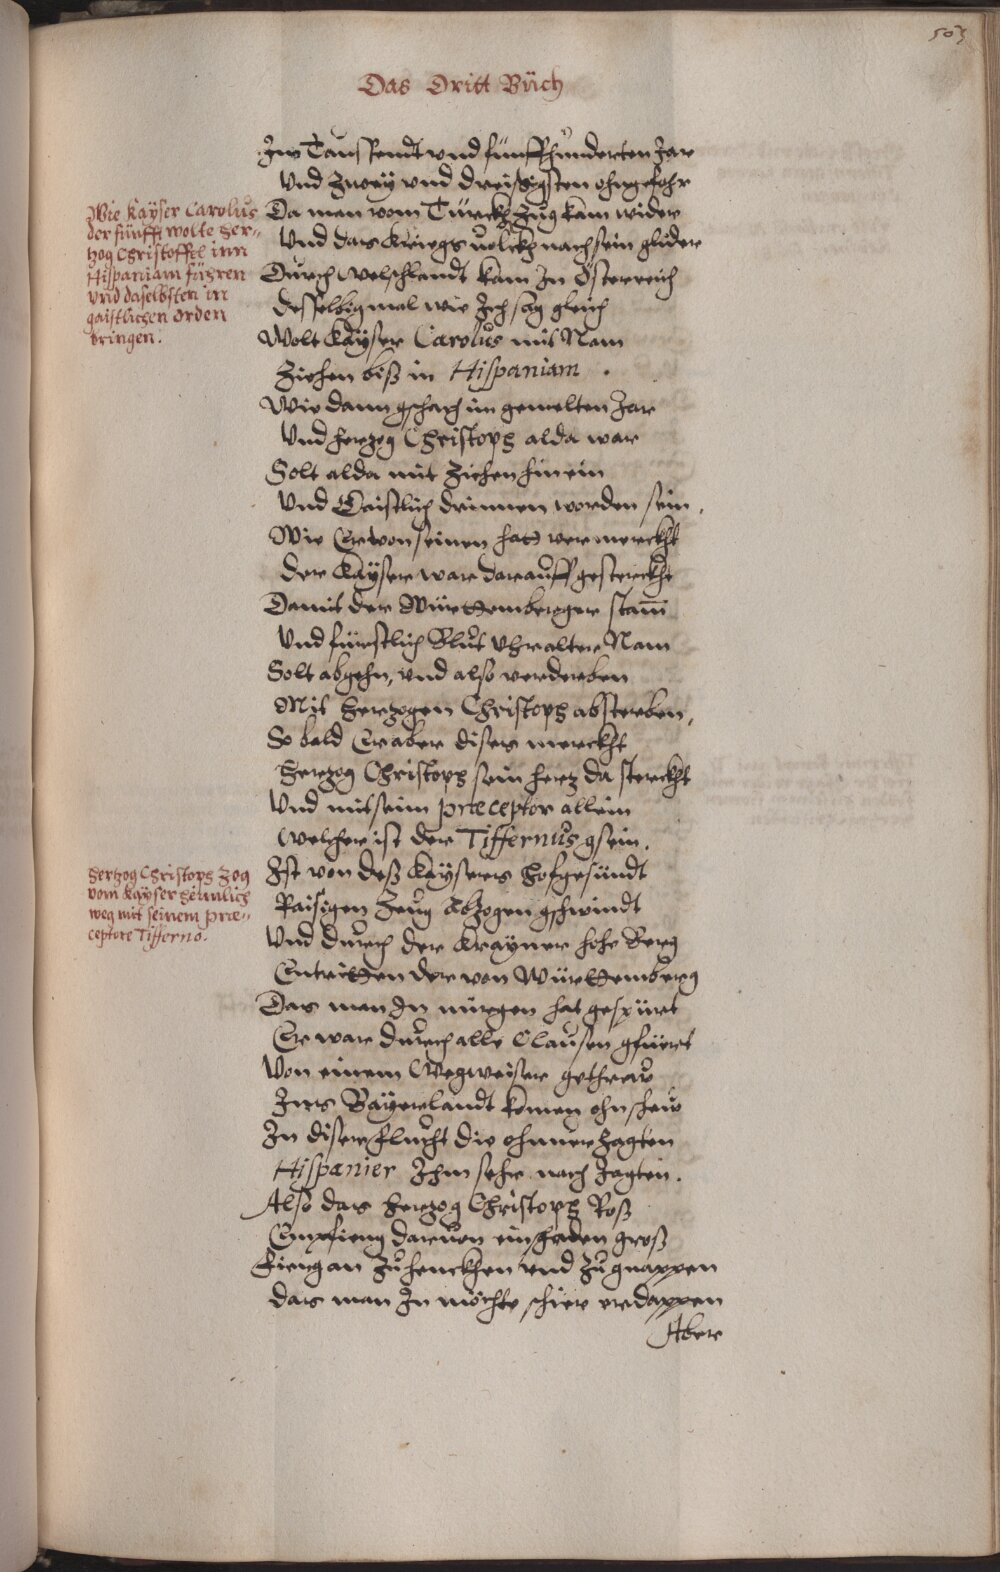 503
Das Dritt Büch
Im Taussendt und fünffhunderten Jar
Und Zwey und dreissigsten ohngefahr
Wie Kaÿser Carolus
der fünfft wolte Her-
tzog Christoffel inn
Hispaniam füeren
und daselbsten in
gaistlichen Orden
bringen.
Da man vom Türckhzug kam wider
Und das Kriegs volckh nach sein glider
Durch Welschlandt kam In Österreich
Desselbigmal wie Ich sag gleich
Wolt Kaÿser Carolus mit Nam
Ziehen biß in Hispaniam .
Wie dann gschach im gemelten Jar
Und Hertzog Christoph alda war
Solt alda mit Ziehen hinein
Und Gaistlich drinnen worden sein.
Wie Er von seinen hatt vermerckht
Der Kaÿser war darauff gesterckht
Damit der Württemberger stam̄
Und fürstlich Blut Uhralter Nam
Solt abgehn, und also verderben
Mit Hertzogen Christoph absterben,
So bald Er aber dises merckht
Hertzog Christoph sein hertz da sterckht
Und mit seim præceptor allein
Welcher ist der Tiffernus gsein.
Hertzog Christoph Zog
vom Kaÿser heimlich
weg mit seinem præ-
ceptore Tifferno.
Ist von deß Kaÿsers Hofgesündt
Raisigen Zeug Abzogen gschwindt
Und durch der Krayner hohe Berg
Entritten der von Württemberg
Das man In nürgen hat gespürt
Er war durch alle Clausen gfüert
Von einem Wegweiser gethrew
Ins Baÿerlandt komen ohn schew
In diser flucht die ohnverzagten
Hispanier Ihm sehr nach Jagten.
Also das Hertzog Christophs Roß
Empfieng daruon ein schaden groß
Fieng an Zu henckhen und Zu gnappen
Das man In möchte schier erdappen
Aber